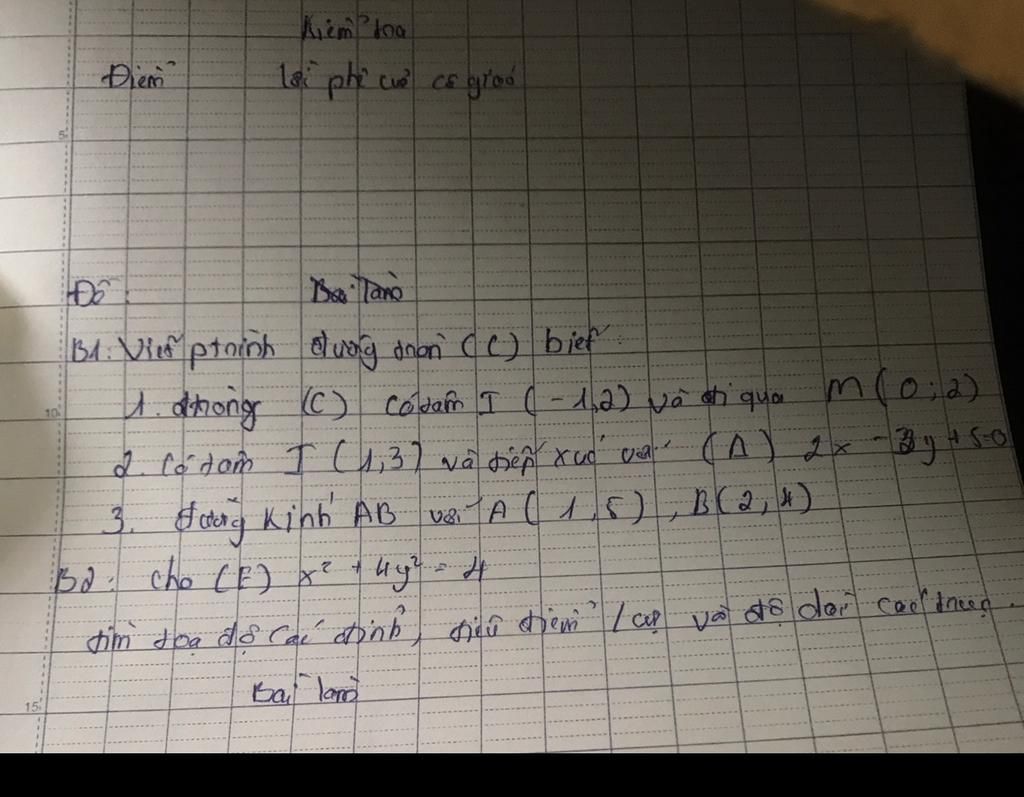 Kiểm tra
Điểm lời phê của cô giáo
5
Đề: Bài làm
B1: Viết ptrình đường tròn (C) biết:
10 1. đường (C) có tâm I (-1,2) và đi qua M(0;2)
2. Có tâm I (1,3) và tiếp xúc với (Δ) 2x - 3y + 5=0
3. đường kính AB với A(1,5), B(2,4)
B2: cho (E) x² + 4y² = 4
tìm tọa độ các đỉnh, tiêu điểm, và độ dài các trục.
15 Bài làm